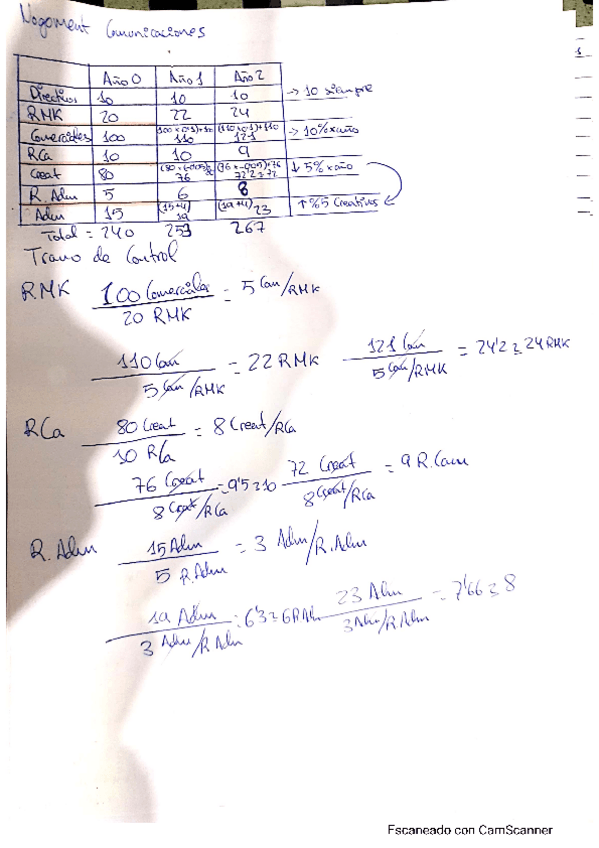 Nogoment Comunicaciones
Año 0 Año 1 Año 2
Directivos 10 10 10 → 10 siempre
RMK 20 22 24
Comerciales 100 (100 x 0'1)+100 110 (110 x 0'1)+110 121 → 10% x año
RCa 10 10 9
Creat 80 76 (76 x -0'05)+76 72'2 = 72 ↓ 5% x año
R. Adm 5 6 8
Adm 15 (15+4) 19 (19+4) 23 ↑ %5 Creativos
Total = 240 253 267
Tramo de Control
RMK 100 Comerciales / 20 RMK = 5 Com/RMK
110 Com / 5 Com/RMK = 22 RMK 121 Com / 5 Com/RMK = 24'2 ≥ 24 RMK
RCa 80 Creat / 10 RCa = 8 Creat/RCa
76 Creat / 8 Creat/RCa = 9'5 ≥ 10 72 Creat / 8 Creat/RCa = 9 R.Cam
R. Adm 15 Adm / 5 R.Adm = 3 Adm/R.Adm
19 Adm / 3 Adm/R Adm = 6'3 ≥ 6 RAdm 23 Adm / 3 Adm/R Adm = 7'66 ≥ 8
Escaneado con CamScanner